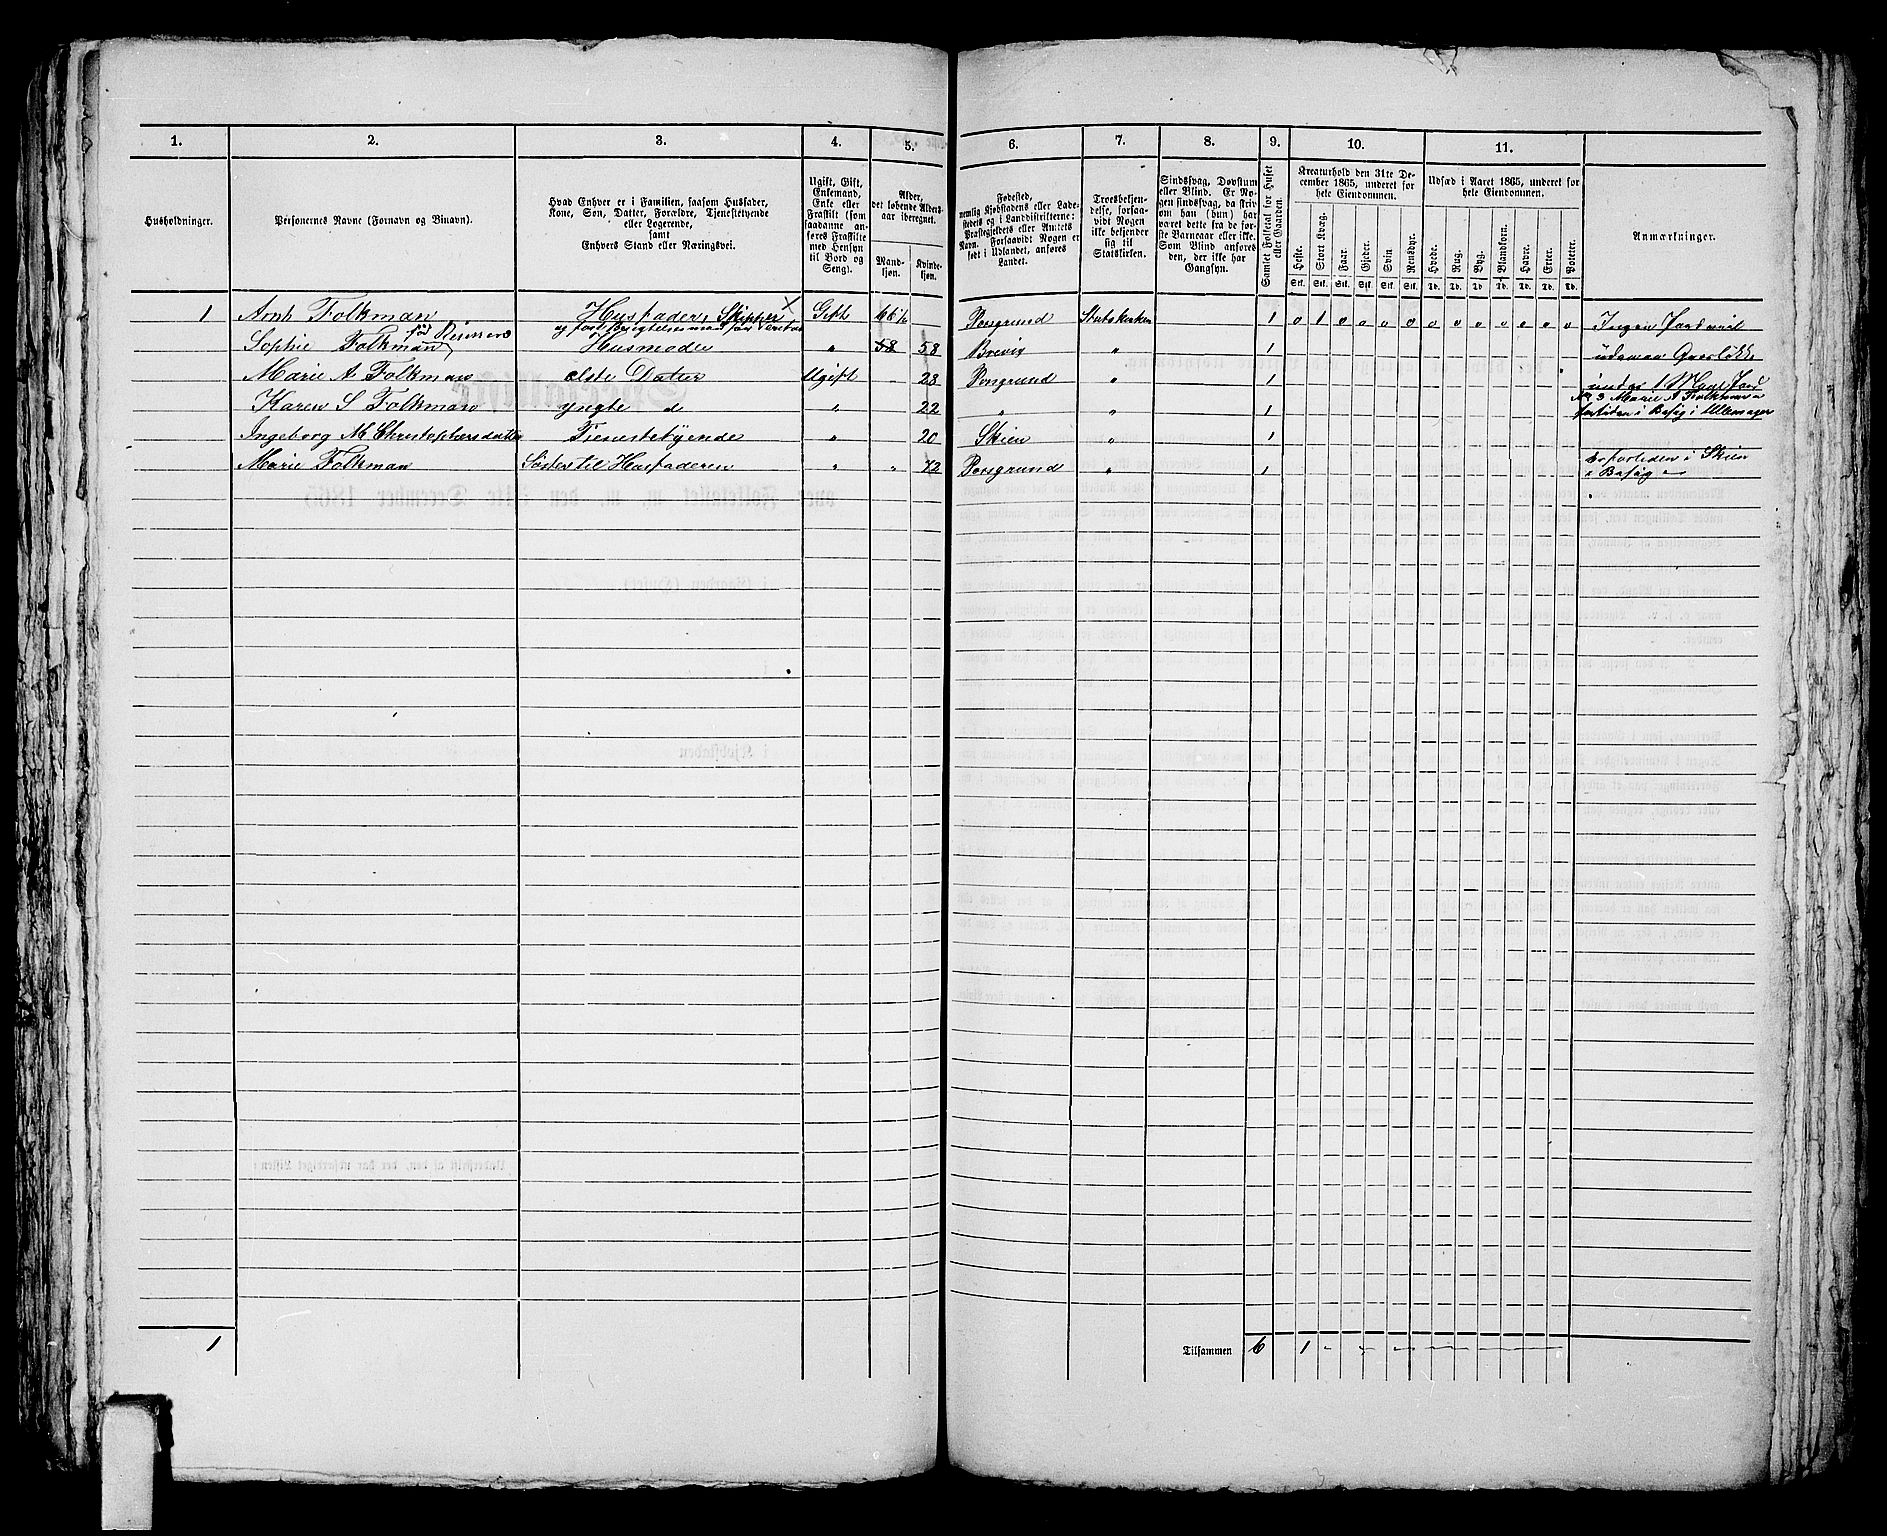 1. 2. 3. 4. 5. 6. 7. 8. 9. 10. 11.
Husholdninger.
Personernes Navne (Fornavn og Binavn).
Hvad Enhver er i Familien, saasom Husfader,
Kone, Søn, Datter, Forældre, Tjenestetyende
eller Logerende,
samt
Enhvers Stand eller Næringsvei.
Ugift, Gift,
Enkemand,
Enke eller
Fraskilt (som
saadanne an-
føres Fraskilte
med Hensyn
til Bord og
Seng).
Alder,
det løbende Alders-
aar iberegnet.
Mand-
kjøn.
Kvinde-
kjøn.
Fødested,
nemlig Kjøbstadens eller Lade-
stedets og i Landdistrikterne:
Præstegjeldets eller Amtets
Navn. Forsaavidt Nogen er
født i Udlandet, anføres
Landet.
Troesbekjen-
delse, forsaa-
vidt Nogen
ikke bekjender
sig til
Statskirken.
Sindssvag, Døvstum
eller Blind. Er No-
gen sindssvag, da skriv
om han (hun) har
været dette fra de før-
ste Barneaar eller ikke.
Som Blind anføres
den, der ikke har
Gangsyn.
Samlet Folketal for Huset
eller Gaarden.
Kreaturhold den 31te De-
cember 1865, underet for
hele Eiendommen.
Heste. Stort Kvæg. Faar. Gjeder. Svin Rensdyr.
Stk. Stk. Stk. Stk. Stk. Stk.
Udsæd i Aaret 1865, underet for
hele Eiendommen.
Hvede. Rug. Byg. Blandkorn. Havre. Erter. Poteter.
Td. Td. Td. Td. Td. Td. Td.
Anmærkninger.
1 Folkman Husfader, Skipper Gift 66 Porsgrund Statskirken 1 0 1 0 0 0 0 0 0 0 0 0 0 0 Ingen
Sophie Folkman Husmoder " 58 58 Brevig " 1
Marie A Folkman ælste Datter Ugift - 23 Porsgrund " 1
Karen S Folkman yngte d " 22 " " 1 No 3 Marie A Folkman
Ingeborg M Christophersdatter Tienestetyende " 20 Skien " 1
Marie Folkman Søster til Husfaderen " " 72 Porsgrund " 1 i Skien
i Besøg
1 Tilsammen 6 1